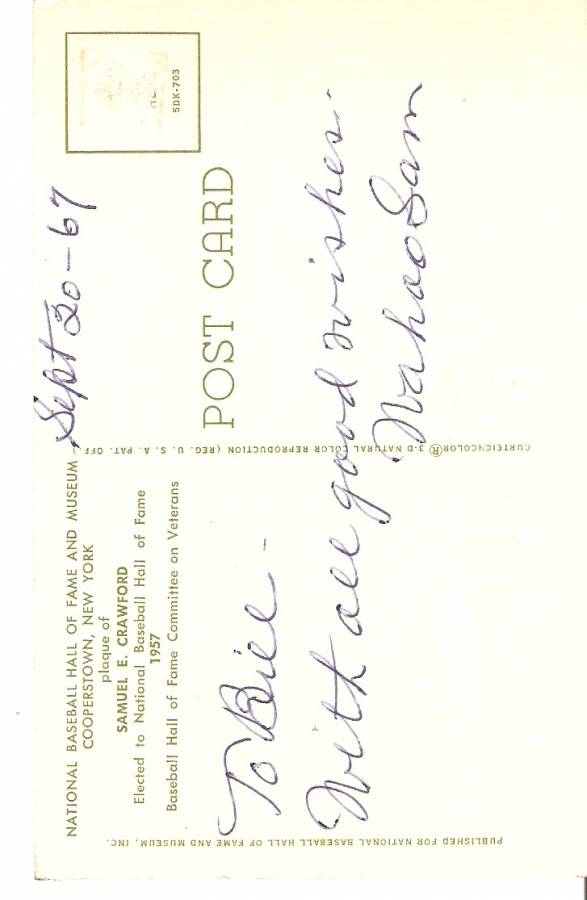 NATIONAL BASEBALL HALL OF FAME AND MUSEUM
COOPERSTOWN, NEW YORK
plaque of
SAMUEL E. CRAWFORD
Elected to National Baseball Hall of Fame
1957
Baseball Hall of Fame Committee on Veterans
Sept 20-67
5DK-703
POST CARD
To Bill -
With all good wishes.
Wahoo Sam
PUBLISHED FOR NATIONAL BASEBALL HALL OF FAME AND MUSEUM, INC.
CURTEICHCOLOR® 3-D NATURAL COLOR REPRODUCTION (REG. U. S. A. PAT. OFF.